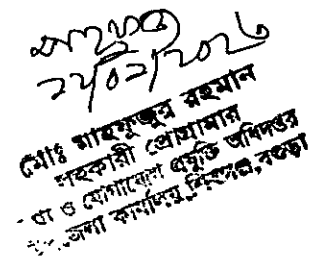 ২২/০২/২০২৬
মোঃ মাহফুজুর রহমান
সহকারী প্রোগ্রামার
ও যোগাযোগ প্রযুক্তি অধিদপ্তর
কার্যালয়, শিবগঞ্জ, বগুড়া